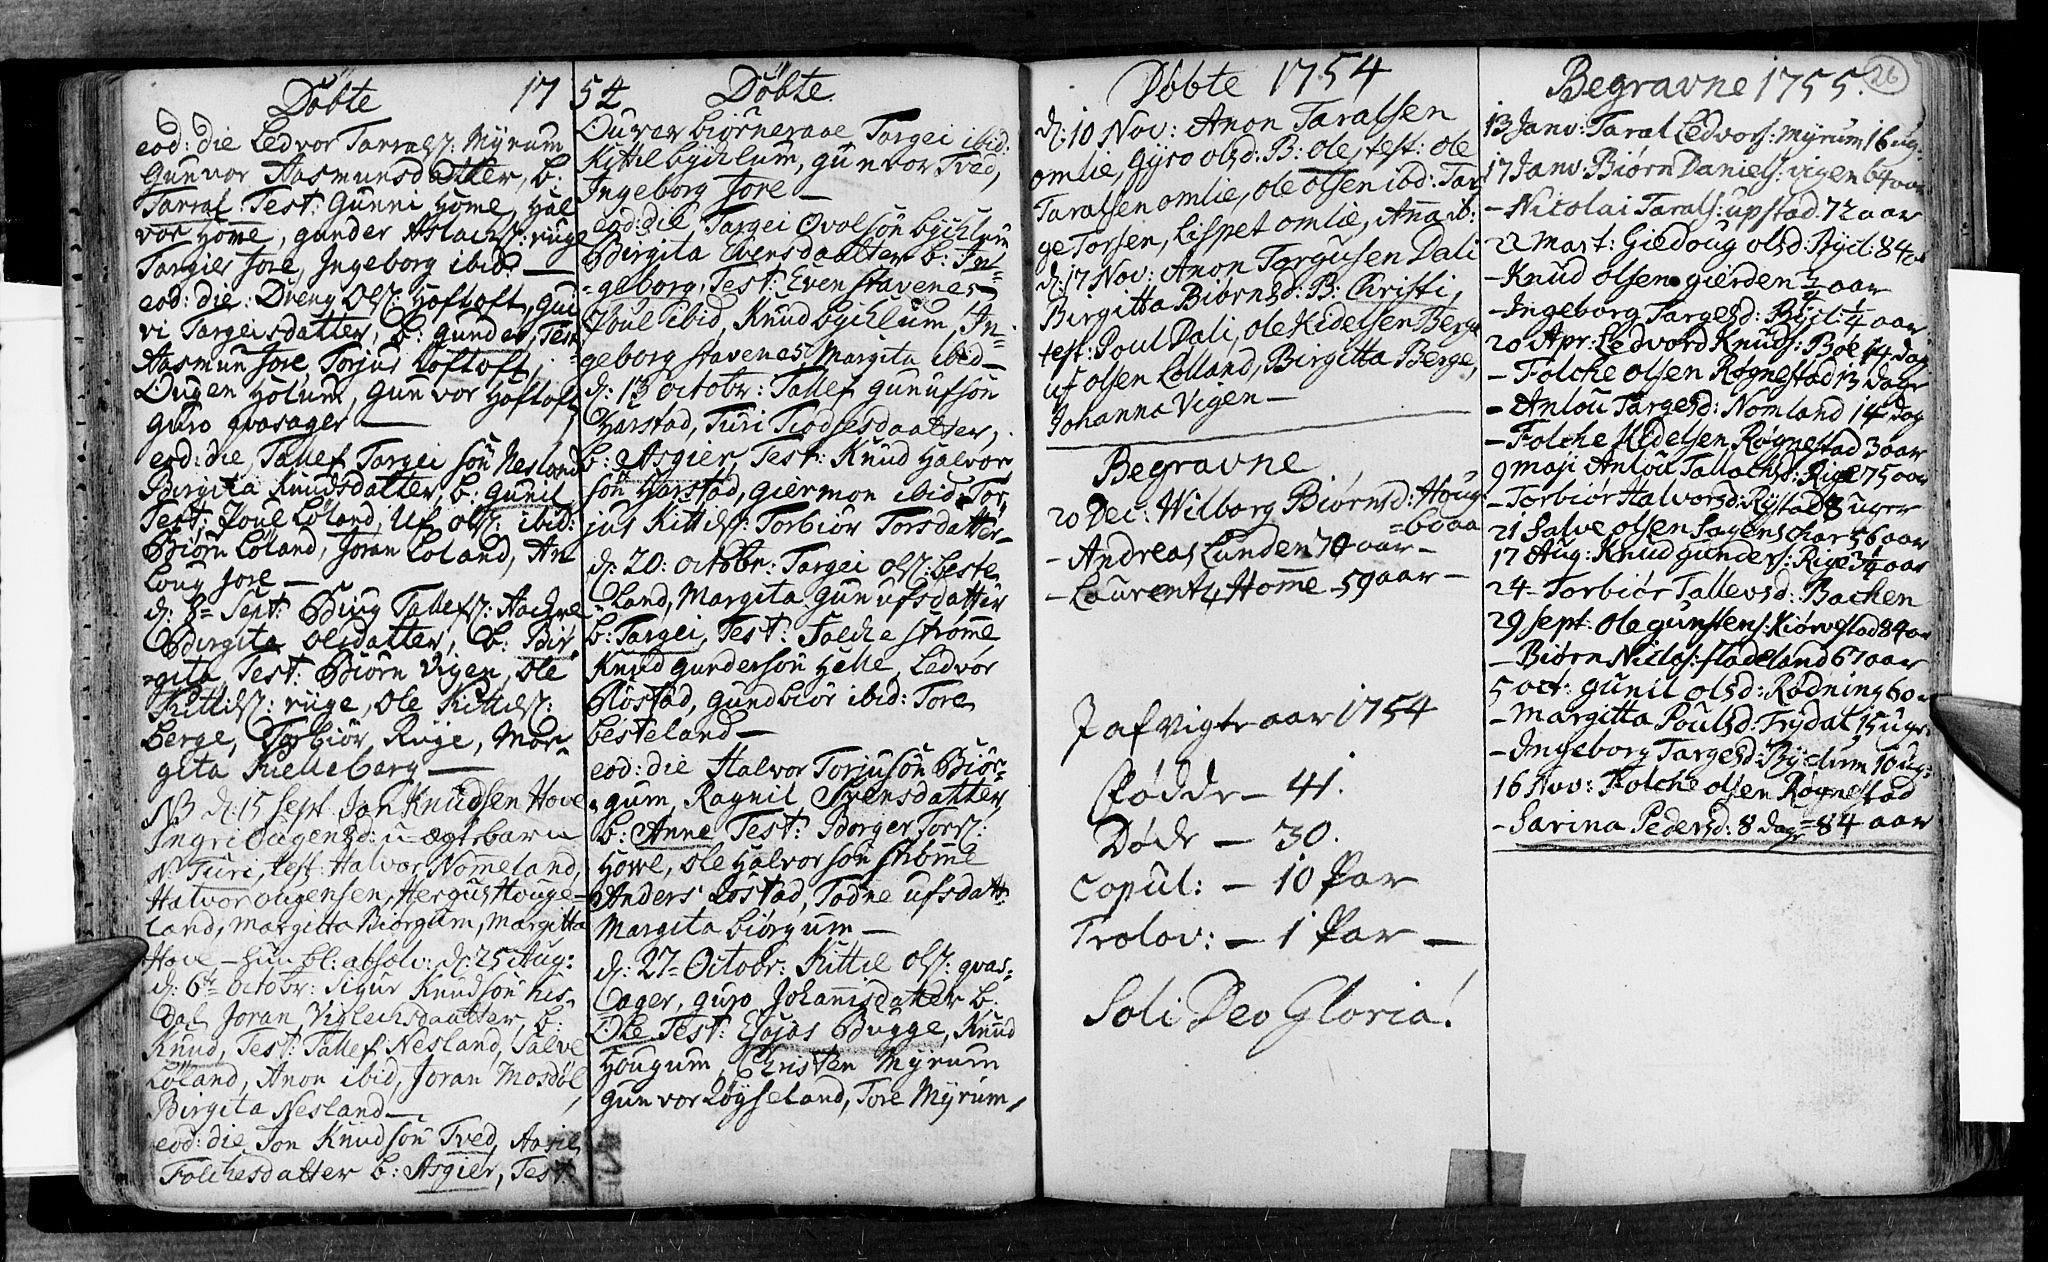 Döbte 1754
eod: die Ledvor Tarrals: Myrum
Gunvor Aasmunsdatter, b.
Tarral. Test: Gunni Home, Hal
vor Home, gunder Aslachs: ruge
Targier Jore, Ingeborg ibid. —
eod: die: Dreng Ols: Hoftoft, Gui
vi Targeisdatter, b. gunder, Test:
Aasmun Jore, Torjus Hoftoft,
Ougen Holum, Gunvor Hoftoft
guro qvasager —
eod: die, Tallef Targei sön Nesland
Birgita Knudsdatter, b: gunil
Test: Poul Löland, Uf ols: ibid:
Biörn Löland, Joran Loland, An
Loug Jore —
d: 8= Sept: Tallefs: Aachre
Birgita Olsdatter, b. Bir
=gita, Test: Biörn Vigen, Ole
Kittils: ruge, Ole Kittils:
berge, Torbiör Ruge, Mar=
gita Kielleberg —
NB d: 15 Sept. Jon Knudsen Hove
Ingri Ougensd: u-ægte barn
N. Turi, test: Halvor Nomeland,
Halvor ougensen, Hergus Houge=
land, Margitta Biörgum, Margitta
Hove — hun bl: absolv: d: 25 Aug:
d: 6te Octobr: Sigur Knudsön his
dal, Joran Vidlechsdaatter, b:
Knud, Test: Tallef Nesland, Salve
Loland, Anon ibid, Joran Mosdöl,
Birgita Nesland —
eod: die Jon Knudsön Tved, Aasil
Folchesdatter b: Asgier, Test:
Döbte
biörneraae Targei ibid:
Kittil bychlum, gunvor Tved,
Ingeborg Jore —
eod: die, Targei Ovolsön bychlum
Birgita Evensdaatter b: In=
=geborg, Test: Even stavenes
Poul ibid, Knud bychlum, In=
geborg stavenes, Margita ibid —
d: 13 Octobr: Tallef gunufsön
Harstad, Turi Tiodsesdaatter,
b: Asgier, Test: Knud Halvor
sön Harstad, giermon ibid. Tor,
jus Kittils: Torbiör Torsdatter —
d: 20: octobr: Targei ols: beste
=land, Margita Gunufsdatter
b: Targei, Test: Folche strömme
Knud gundersön Helle, Ledvor
Röstad, gundbiör ibid: Tore
besteland —
eod: die Halvor Torjusön Biör=
=gum, Ragnil Svensdatter,
b: Anne Test: Borger Tors:
Howe, Ole Halvorsön strömme
Anders Löstad, Todne ufsdatt:
Margita biörgum —
d: 27= Octobr: Kittil ols: qvas=
=ager, guro Johannisdatter b:
Ole Test: Esajas Bugge, Knud
Hougum, Christen Myrum
gunvor Löyseland, Tore Myrum,
Döbte 1754
d: 10 Nov: Anon Taralsen
omlie, Gyro olsd: B: ole, test: ole
Taralsen omlie, ole olsen ibd: Tar
ge Torsen, Lispet omlie, Anna ib:
d: 17 Nov: Anon Torgusen Dali
Birgitta Biörnsd: B: Christi,
test: Poul Dali, ole Kidelsen Berge
uf olsen Lolland, Birgitta Berge,
Johanna Vigen —
Begravne
20 Dec: Wilborg Biörnsd: Houg:
=60 aa
— Andreas Lunden 70 aar —
— Laurents Home — 59 aar —
J afvigte aar 1754
Födde — 41.
Döde — 30.
Copul: — 10 Par
Trolov: — 1 Par —
Soli Deo Gloria!
Begravne 1755.
26
13 Janv: Taral Ledvors: myrum 16 ug:
17 Janv: Biörn Daniels: vigen 64 aar
— Nicolai Tarals: upstad 72 aar
22 Mart: Giedoug olsd: Bycl: 84 aar
— Knud olsen gierden 3/4 aar
— Ingeborg Targesd: Bycl: 1/4 aar
20 Apr: Ledvord Knuds: Boe 14 dag
— Folche olsen Rögnestad 13 dage
— Anlou Targesd: Nomland 14 dag
— Folche Kidelsen Rögnestad 3 aar
9 Maji Anlou Tallachsd: Rige 75 aar
— Torbiör Halvorsd: Rystad 8 uger
21 Salve olsen Lagenschar 56 aar
17 Aug: Knud gunders: Rige 3 1/4 aar
24 — Torbiör Tallevsd: Bachen
29 Sept: ole gunstens: Kiörvestad 84 aar
— Biörn Niels: fladeland 67 aar
5 oct: gunil olsd: Rödning 60 a
— Margitta Poulsd: Frydal 15 uger
— Ingeborg Targesd: Byclum 10 ug:
16 Nov: Folche olsen Rögnestad
— Sarina Pedersd: 8 dage = 84 aar